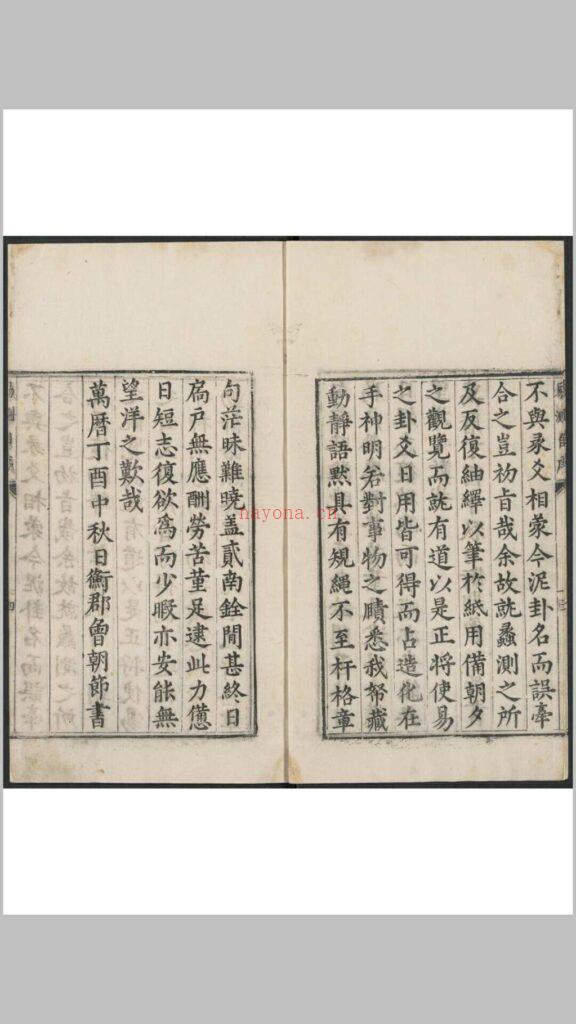 不與彖爻相蒙今泥卦名而誤牽
合之豈初旨哉余故就蠡測之所
及反復紬繹以筆於紙用備朝夕
之觀覽而就有道以是正將使易
之卦爻日用皆可得而占造化在
手神明若對事物之賾悉我帑藏
動靜語黙具有䂓繩不至杆格章
句茫昧難曉盖貳南銓閒甚終日
扃戶無應酬勞苦菫足逮此力憊
日短志復欲爲而少暇亦安能無
望洋之歎哉
萬曆丁酉中秋日衡郡曾朝節書
nayona.cn